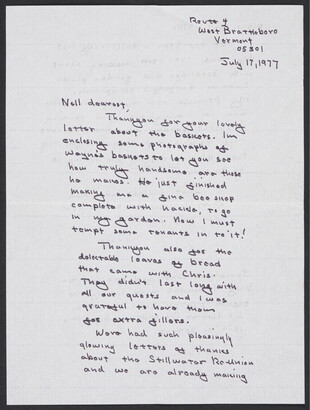 Route 4
West Brattleboro
Vermont
05301
July 17, 1977
Nell dearest,
Thankyou for your lovely
letter about the baskets. Im
enclosing some photographs of
Wayne's baskets to let you see
how truly handsome are those
he makes. He just finished
making me a fine bee skep
complete with hackle, to go
in my garden. Now I must
tempt some tenants in to it!
Thankyou also for the
delectable loaves of bread
that came with Chris.
They didn't last long with
all our guests and I was
grateful to have them
for extra fillers.
Were had such pleasingly
glowing letters of thanks
about the Stillwater Re-Union
and we are already making